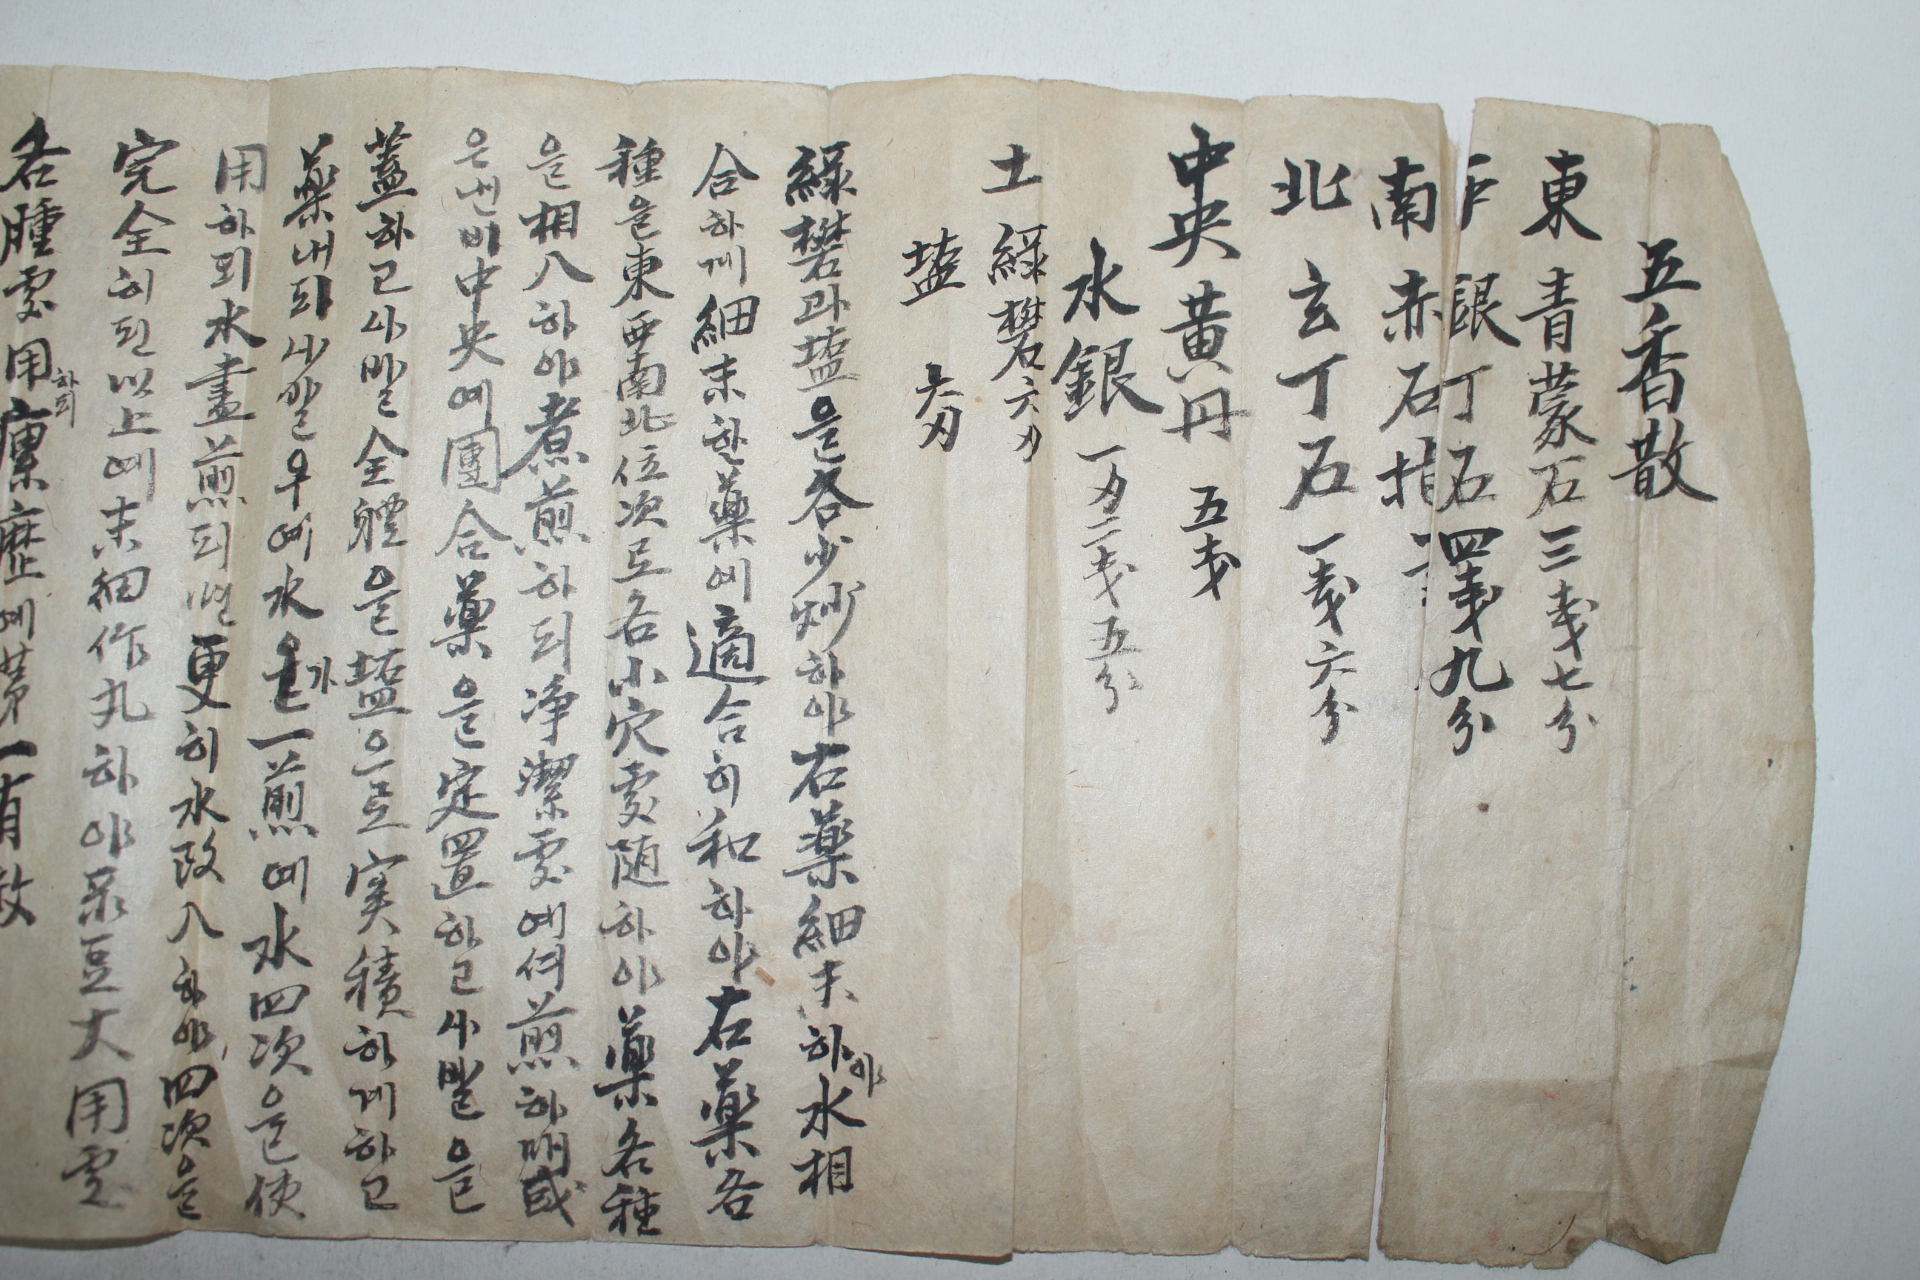 五香散
東 青蒙石 三戔七分
銀丁石 四戔九分
南 赤石指
北 玄丁石 一戔六分
中央 黃丹 五戔
水銀 一刄二戔五分
土 綠礬 六刄
塩 六刄
綠礬과塩을各少炒하야右藥細末하야水相
合하게細末한藥에適合히和하야右藥各
種을東西南北位次로各小穴處随하야藥各種
을相入하야煮煎하되净潔處에셔煎하며
은낸비中央에團合藥을定置하고사발을
蓋하고사발全體을塩으로実積하게하고
藥내되사발우에水을가一煎에水四次을使
用하되水盡煎되면更히水改入하야四次을
完全히된以上에末細作丸하야菉豆大用
各腫處用하되瘰癧에第一有效